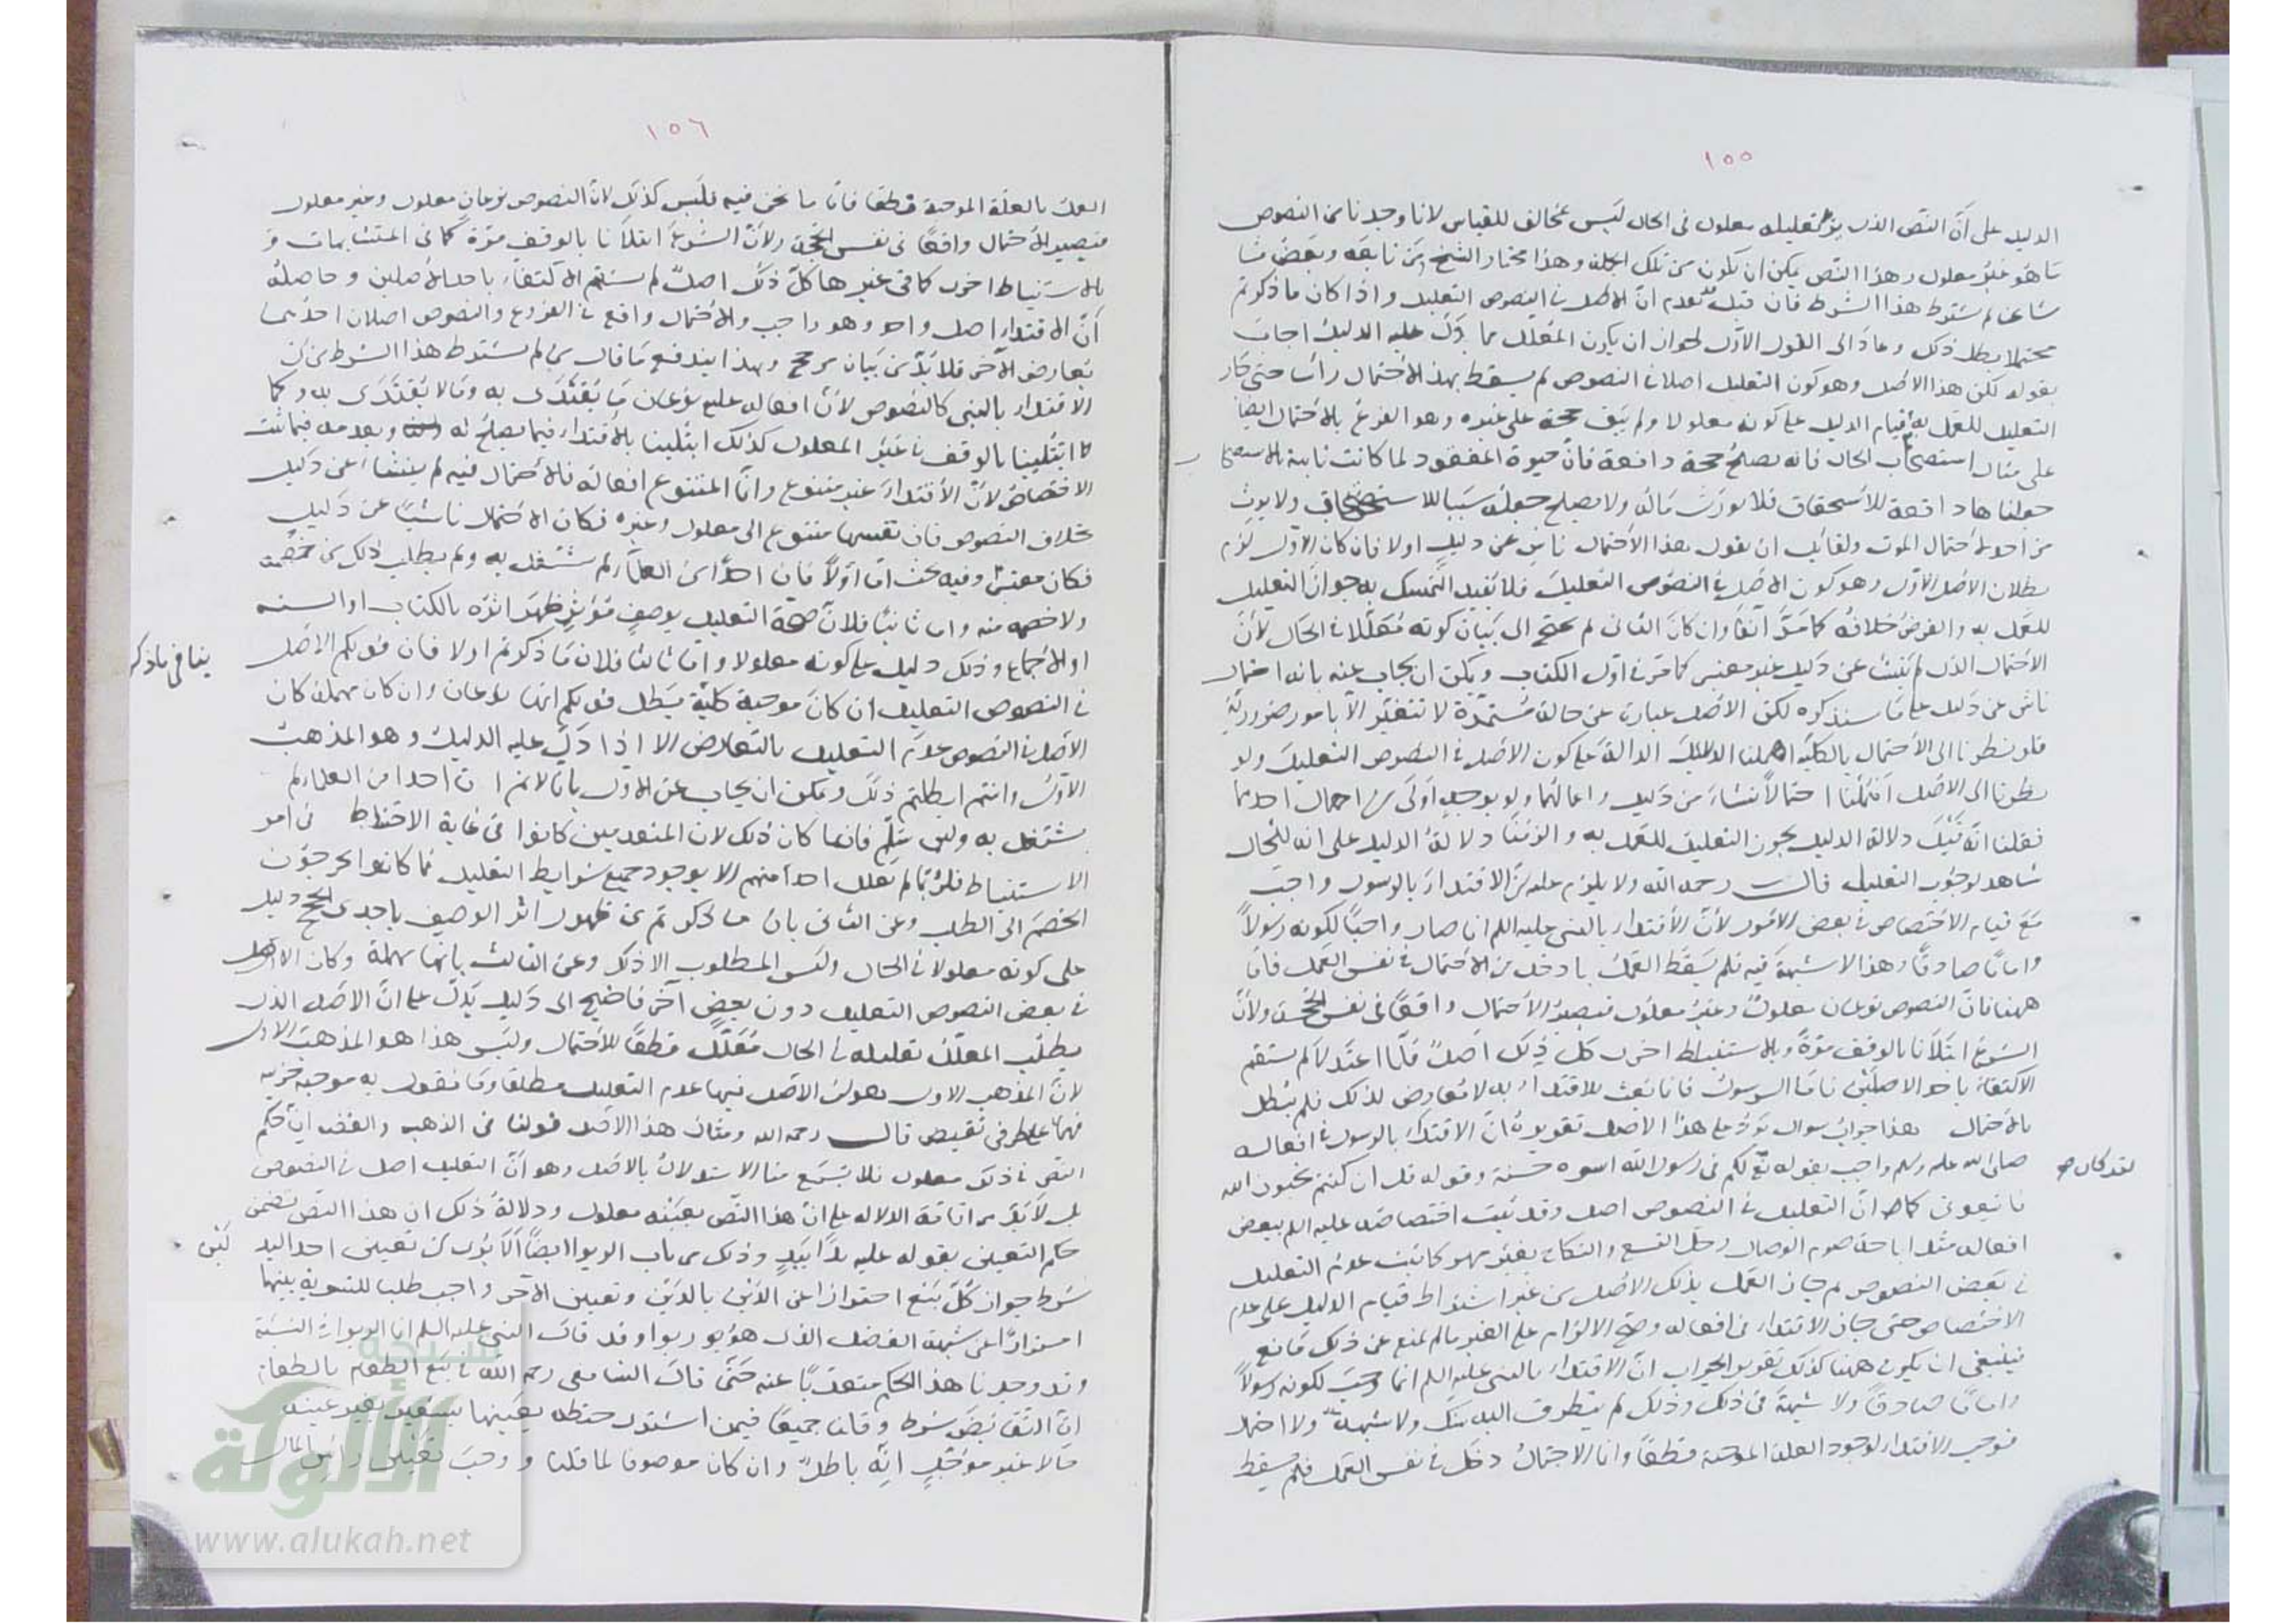 ١٥٥
الدليل على أن النص الذي يراد تعليله معلول في الحال ليس بمخالف للقياس لانا وجدنا من النصوص
ما هو غير معلول وهذا النص يمكن ان يكون من تلك الجملة وهذا مختار الشيخ ومن تابعه وبعض مشا
شايخنا لم يشترط هذا الشرط فان قيل قد تقدم ان الاصل في النصوص التعليل واذا كان ما ذكرتم
محتملا بطل ذلك وعاد الى القول الاول لجواز ان يكون المعلل مما دل عليه الدليل اجاب
بقوله لكن هذا الاصل وهو كون التعليل اصلا في النصوص لم يسقط بهذا الاحتمال رأسا حتى جاز
التعليل للعمل به قبل قيام الدليل على كونه معلولا ولم يبق حجة على غيره وهو الفرع بالاحتمال ايضا
على مثال استصحاب الحال فانه يصلح حجة دافعة فان حيوة المفقود لما كانت ثابتة بالاستصحا
جعلناها دافعة للاستحقاق فلا يورث ماله ولا يصلح جعله سببا للاستحقاق ولا يرث
من احد لاحتمال الموت ولقائل ان يقول هذا الاحتمال ناش عن دليل اولا فان كان الاول لزم
بطلان الاصل الاول وهو كون الاصل في النصوص التعليل فلا يفيد التمسك به جواز التعليل
للعمل به والفرض خلافه كما مر آنفا وان كان الثاني لم يحتج الى بيان كونه معللا في الحال لأن
الاحتمال الذي لم ينشأ عن دليل غير معتبر كما مر في اول الكتاب ويمكن ان يجاب عنه بانه احتمال
ناش عن دليل على ما سنذكره لكن الاصل عبارة عن حالة مستمرة لا تتغير الا بامور ضرورية
فلو نظرنا الى الاحتمال بالكلية اهملنا الدلائل الدالة على كون الاصل في النصوص التعليل ولو
نظرنا الى الاصل اهملنا احتمالا نشأ من دليل واعمالهما ولو بوجه اولى من اهمال احدهما
فقلنا انه قبل دلالة الدليل يجوز التعليل للعمل به والزمنا دلالة الدليل على انه للحال
شاهد لوجوب التعليل قال رحمه الله ولا يلزم عليه ان الاقتداء بالرسول واجب
مع قيام الاختصاص في بعض الامور لأن الاقتداء بالنبي عليه السلم انما صار واجبا لكونه رسولا
واماما صادقا وهذا لا شبهة فيه فلم يسقط العمل بما دخل من الاحتمال في نفس العمل فاما
ههنا فان النصوص نوعان معلول وغير معلول فيصير الاحتمال واقعا في نفس الحجة ولأن
الشرع ابتلانا بالوقف مرة وبالاستنباط اخرى كل ذلك اصل فلما اعتدلا لم يستقم
الاكتفاء باحد الاصلين فاما الرسول فانما بعث للاقتداء به لا معارض لذلك فلم يبطل
بالاحتمال هذا جواب سوال يرد على هذا الاصل تقريره ان الاقتداء بالرسول في افعاله
صلى الله عليه وسلم واجب بقوله تع لكم في رسول الله اسوة حسنة وقوله قل ان كنتم تحبون الله
لقد كان صح
فاتبعوني كما ان التعليل في النصوص اصل وقد ثبت اختصاصه عليه السلم ببعض
افعاله مثل اباحة صوم الوصال وحل التسع والنكاح بغير مهر كما ثبت عدم التعليل
في بعض النصوص ثم جاز العمل بذلك الاصل من غير اشتراط قيام الدليل على عدم
الاختصاص حتى جاز الاقتداء في افعاله وصح الالزام على الغير ما لم يمنع عن ذلك مانع
فينبغي ان يكون ههنا كذلك تقرير الجواب ان الاقتداء بالنبي عليه السلم انما وجب لكونه رسولا
واماما صادقا ولا شبهة في ذلك وذلك لم يتطرق اليه شك ولا شبهة ولا احتمال
فوجب الاقتداء لوجود العلة الموجبة قطعا وانما الاحتمال دخل في نفس العمل فلم يسقط
١٥٦
العمل بالعلة الموجبة قطعا فاما ما نحن فيه فليس كذلك لان النصوص نوعان معلول وغير معلول
فيصير الاحتمال واقعا في نفس الحجة ولأن الشرع ابتلانا بالوقف مرة كما في المتشابهات و
بالاستنباط اخرى كما في غيرها كل ذلك اصل لم يستقم الاكتفاء باحد الاصلين وحاصله
أن الاقتداء اصل واحد وهو واجب والاحتمال واقع في الفروع والنصوص اصلان احدهما
يعارض الآخر فلا بد من بيان مرجح وبهذا يندفع ما قال من لم يشترط هذا الشرط من ان
الاقتداء بالنبي كالنصوص لأن افعاله عليه نوعان ما يقتدى به وما لا يقتدى به وكما
ابتلينا بالوقف في غير المعلول كذلك ابتلينا بالاقتداء فيما يصلح له وبعدمه فيما ثبت
الاختصاص لان الاقتداء غير متنوع وانما المتنوع افعاله فالاحتمال فيه لم ينشأ عن دليل
بخلاف النصوص فان نفسها متنوع الى معلول وغيره فكان الاحتمال ناشيا عن دليل
فكان معتبرا وفيه بحث اما اولا فان احدا من العلماء لم يشتغل به ولم يطلب ذلك من خصمه
ولا خصمه منه واما ثانيا فلان صحة التعليل بوصف مؤثر ظهر اثره بالكتاب او السنة
او الاجماع وذلك دليل على كونه معلولا واما ثالثا فلان ما ذكرتم اولا فان قولكم الاصل
ينافي ما ذكر
في النصوص التعليل ان كان موجبة كلية يبطل قولكم انها نوعان وان كان مهملة كان
الاصل في النصوص عدم التعليل بالتعارض الا اذا دل عليه الدليل وهو المذهب
الاول وانتم ابطلتم ذلك ويمكن ان يجاب عن الاول بانا لا نم ان احدا من العلماء لم
يشتغل به ولئن سلم فانما كان ذلك لان المتقدمين كانوا في غاية الاحتياط في امر
الاستنباط فلربما لم يعلل احد منهم الا بوجود جميع شرايط التعليل فما كانوا يحوجون
الخصم الى الطلب وعن الثاني بان ما ذكرتم من ظهور اثر الوصف باحدى الحجج دليل
على كونه معلولا في الحال وليس المطلوب الا ذلك وعن الثالث بانها مهملة وكان الاصل
في بعض النصوص التعليل دون بعض آخر فاحتيج الى دليل يدل على ان الاصل الذي
يطلب المعلل تعليله في الحال معلل قطعا للاحتمال وليس هذا هو المذهب الاول
لان المذهب الاول هو ان الاصل فيها عدم التعليل مطلقا وما نقول به موجبة جزئية
فهما على طرفي نقيض قال رحمه الله ومثال هذا الاصل قولنا في الذهب والفضة ان حكم
النص في ذلك معلول فلا يسمع منا الاستدلال بالاصل وهو ان التعليل اصل في النصوص
بل لا بد من اقامة الدلالة على ان هذا النص بعينه معلول ودلالة ذلك ان هذا النص تضمن
حكم التعيين بقوله عليه يدا بيد وذلك من باب الربوا ايضا ألا يرى ان تعيين احد البد
لين
شرط جواز كل بيع احترازا عن الدين بالدين وتعيين الآخر واجب طلبا للتسوية بينهما
احترازا عن شبهة الفضل الذي هو ربوا وقد قال النبي عليه السلم انما الربوا في النسية
وقد وجدنا هذا الحكم متعديا عنه حتى قال الشافعي رحمه الله في بيع الطعام بالطعام
ان التقابض شرط وقلنا جميعا فيمن اشترى حنطة بعينها بشعير بغير عينه
حالا غير مؤجل انه باطل وان كان موصوفا لما قلنا ووجب تعيين رأس المال
شبكة
الألوكة
www.alukah.net